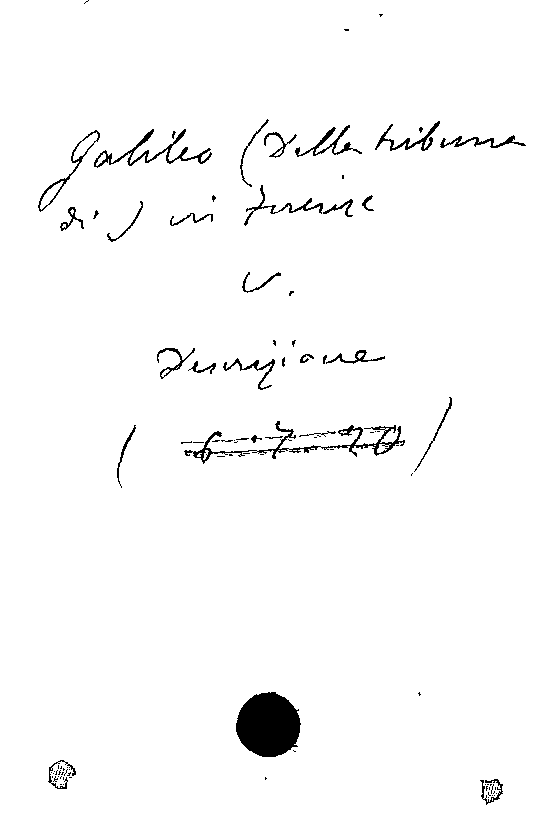 Galileo (Della tribuna
di) in Firenze
v.
Descrizione
( 6.7.20 )